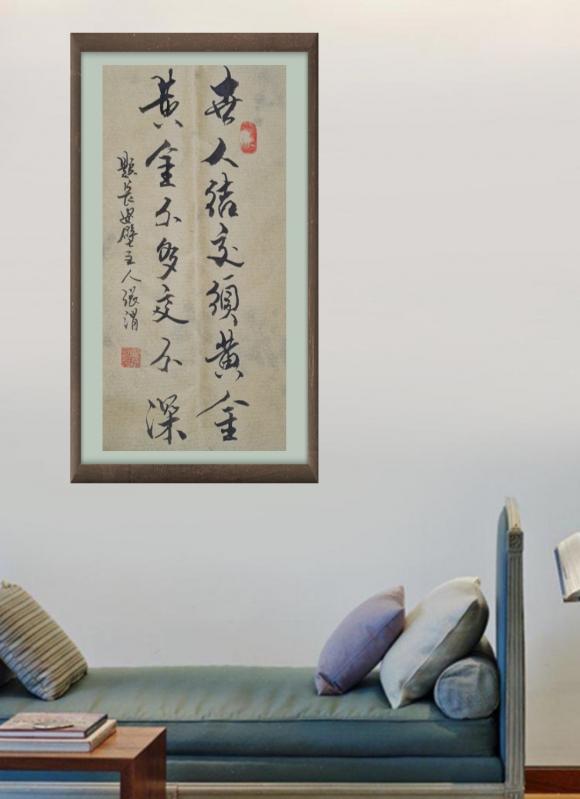 世人结交须黄金
黄金不多交不深
题长安壁主人张渭